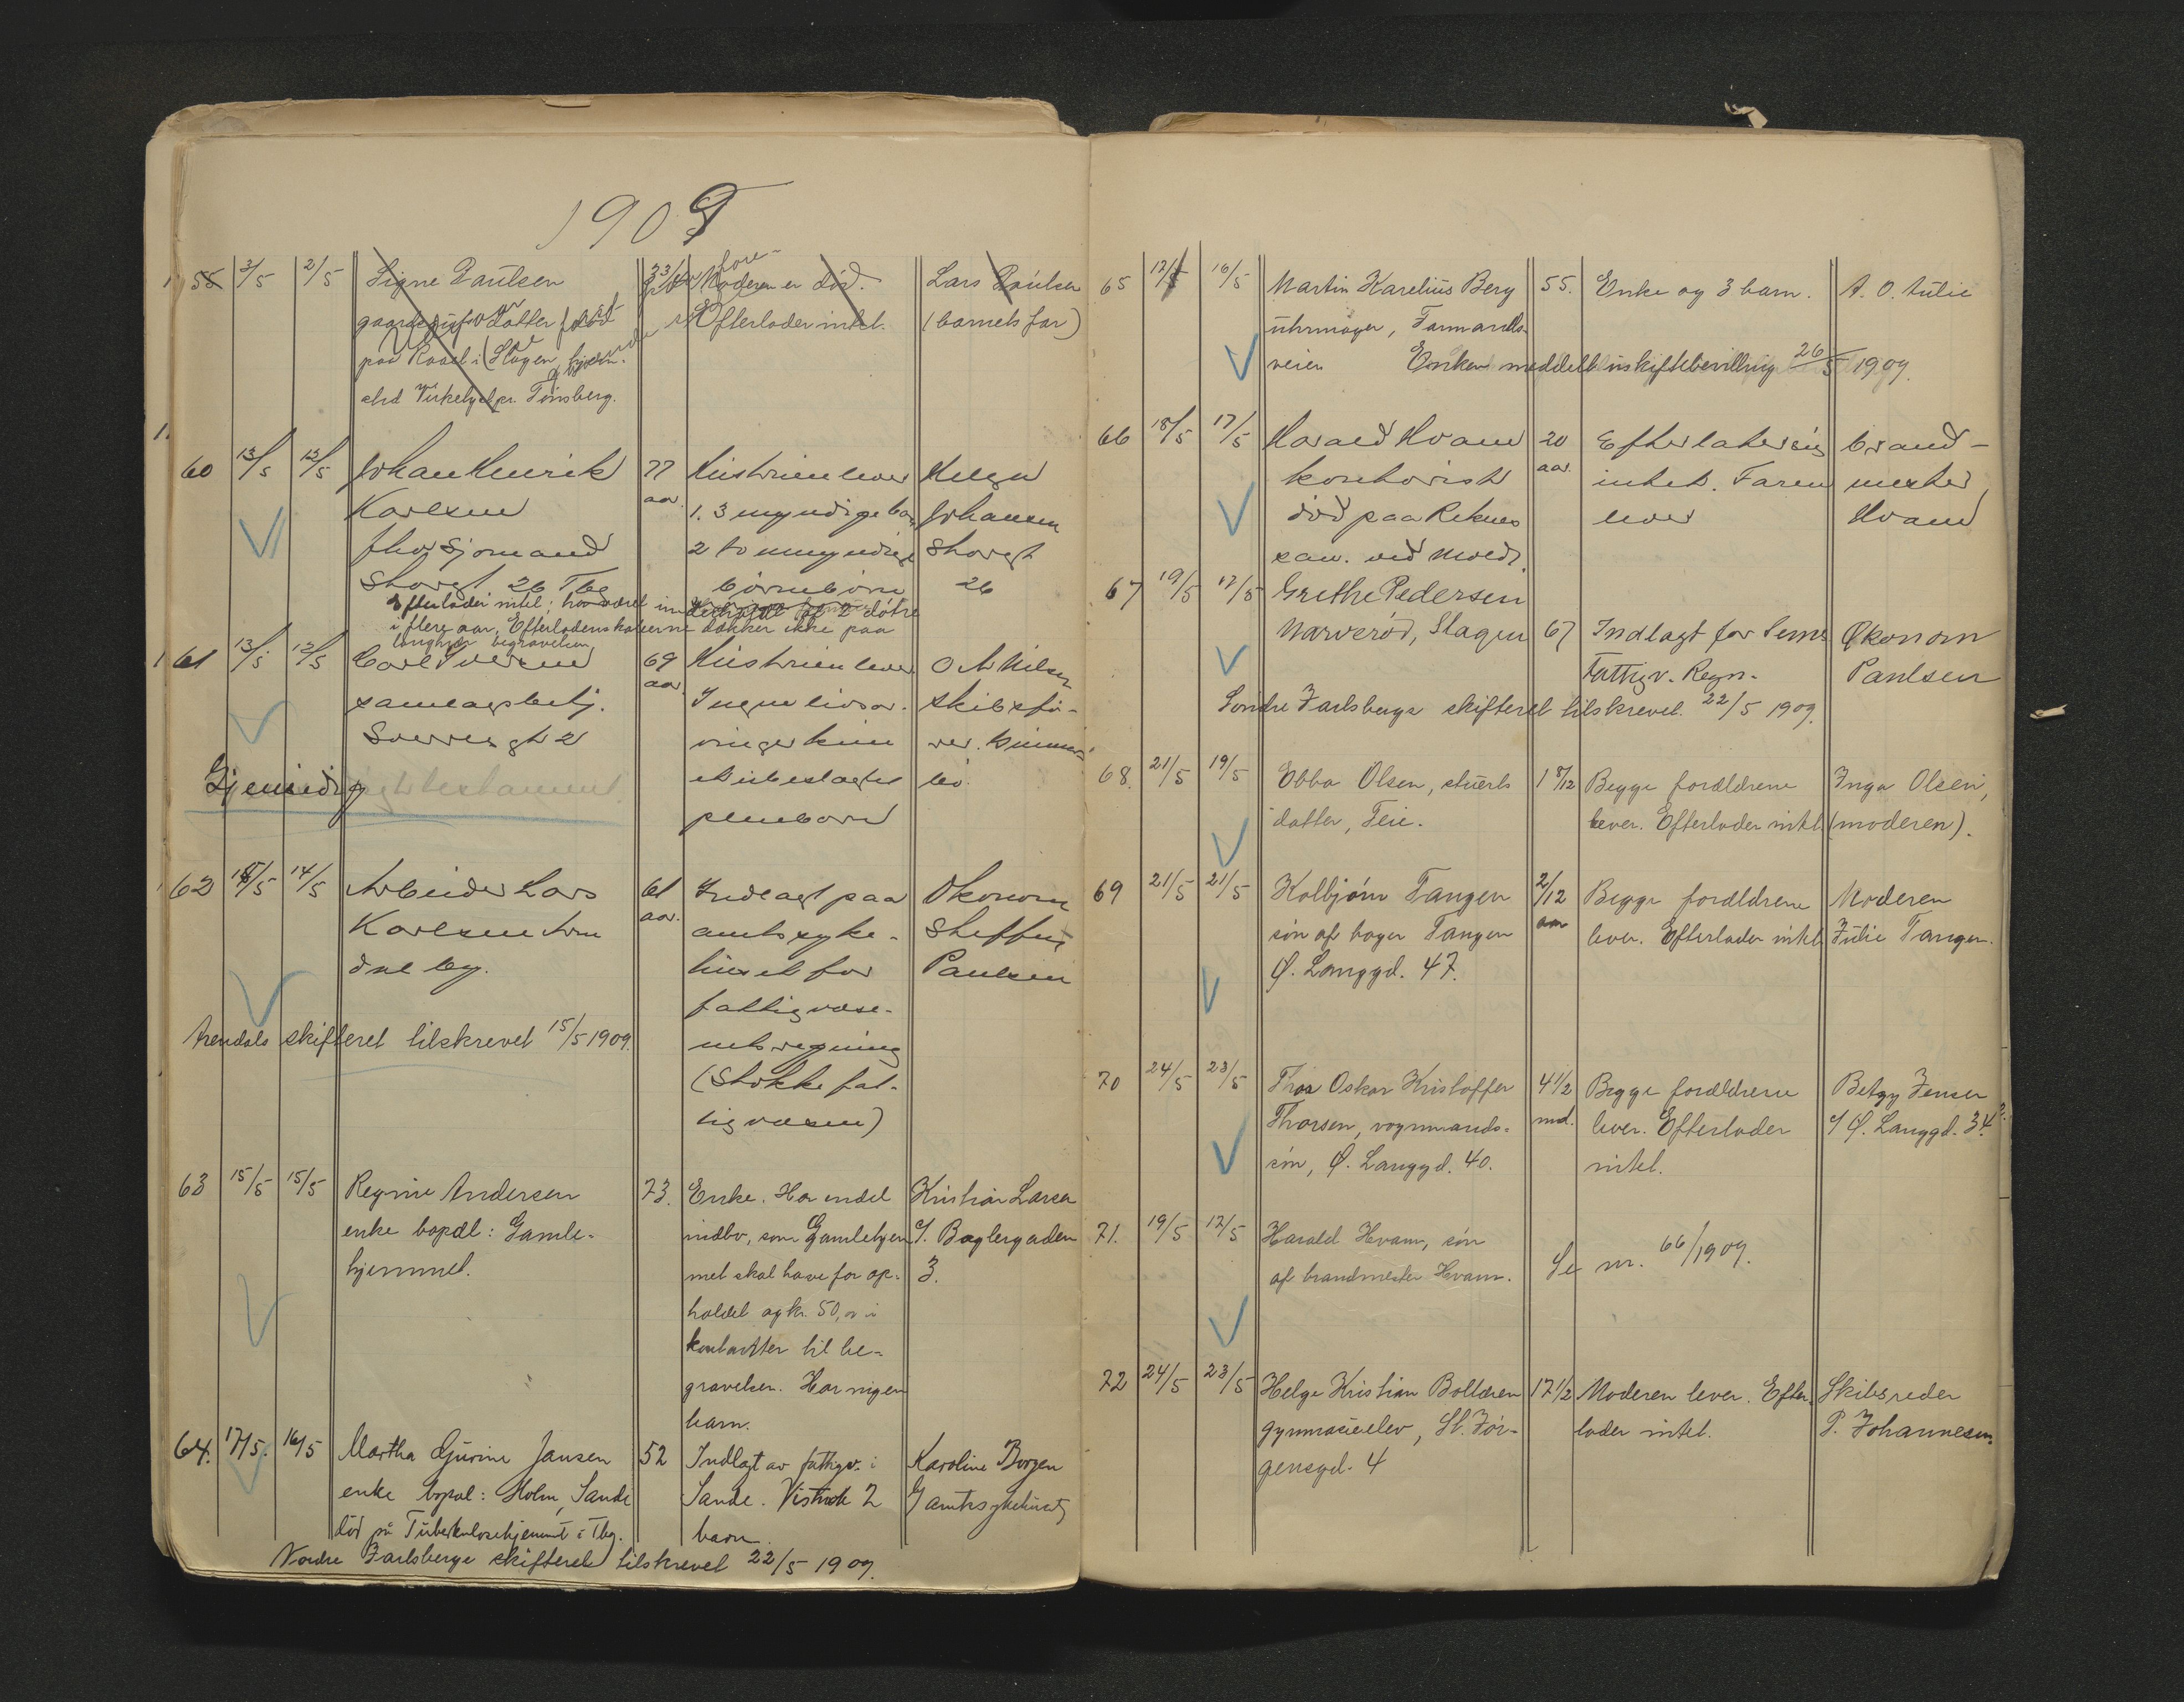 1909
55 3/5 2/5 Signe Paulsen Moderen er død. Lars Paulsen
Efterlader intet. (barnets far)
paa Raael i Slagen,
Virkelyst pr. Tønsberg.
60 13/5 12/5 Johan Henrik 77 Hustruen lever Helga
Karlsen aar. 1. 3 myndige barn Johansen
fhv. Sjømand 2 to umyndige Storgt
Storgt 26 Tbg børnebørn 26
Efterlader intet; har været underholdt af 2 døtre
i flere aar. Efterladenskaberne dækker ikke paa
langt nær begravelsen
61 13/5 12/5 Carl Iversen 69 Hustruen lever O A Nilsen
aar. Ingen livsar- skibsfø-
Sverresgt 2 vinger kun rer.
ubeslagtet
pleiebarn
Gjensidigt testament
62 15/5 14/5 Arbeider Lars 61 Indlagt paa Økonom
Karlsen Aren aar. amtssyke- Steffen
dal by. huset for Paulsen
fattigvæse-
nets regning
(Stokke fat-
tigvæsen)
Arendals skifteret tilskrevet 15/5 1909.
63 15/5 15/5 Regine Andersen 73. Enke. Har endel Kristian Larsen
enke bopæl: Gamle- indbo, som Gamlehjem- Baglergaden
hjemmet. met skal have for op- 3.
holdet og kr. 50,00 i
kontanter til be-
gravelsen. Har ingen
barn.
64. 17/5. 16/5 Martha Gurine Jansen 52 Indlagt av fattigv. i Karoline Borgen
enke bopæl: Holm, Sande Sande. 2 Amtssykehuset
død på Tuberkulosehjemmet i Tbg. barn.
Nordre Jarlsbergs skifteret tilskrevet 22/5 1909.
65 17/5 16/5 Martin Karelius Berg 55. Enke og 3 barn. A. O. Aulie
uhrmager, Farmands-
veien Enken meddelt uskiftebevilling 26/5 1909.
66 18/5 17/5 Harald Hvam 20 Efterlater sig brand-
kontorist aar. intet. Faren mester
død paa Reknes lever Hvam
san. ved Molde.
67 19/5 17/5 Grethe Pedersen
Narverød, Slagen 67 Indlagt for Sems Økonom
Fattigv. Regn. Paulsen
Søndre Jarlsbergs skifteret tilskrevet. 22/5 1909.
68. 21/5 19/5 Ebba Olsen, stuerts 1 8/12 Begge forældrene Inga Olsen,
datter, Teie. lever. Efterlader intet (moderen).
69 21/5 21/5 Kolbjørn Tangen 2/12 Begge forældrene Moderen
søn af bager Tangen aar lever. Efterlader intet Julie Tangen.
Ø. Langgd. 47.
70 24/5 23/5 Thor Oskar Kristoffer 4 1/2 Begge forældrene Betzy Jensen
Thorsen, vognmands- md. lever. Efterlader Ø. Langgd. 34.
søn, Ø. Langgd. 40. intet.
71. 19/5 17/5 Harald Hvam, søn Se nr. 66/1909.
af brandmester Hvam.
72 24/5 23/5 Helge Kristian Bolteren 17 1/2 Moderen lever. Efter- Skibsreder
gymnasieelev, St. Jør- lader intet. P. Johannesen.
gensgd. 4